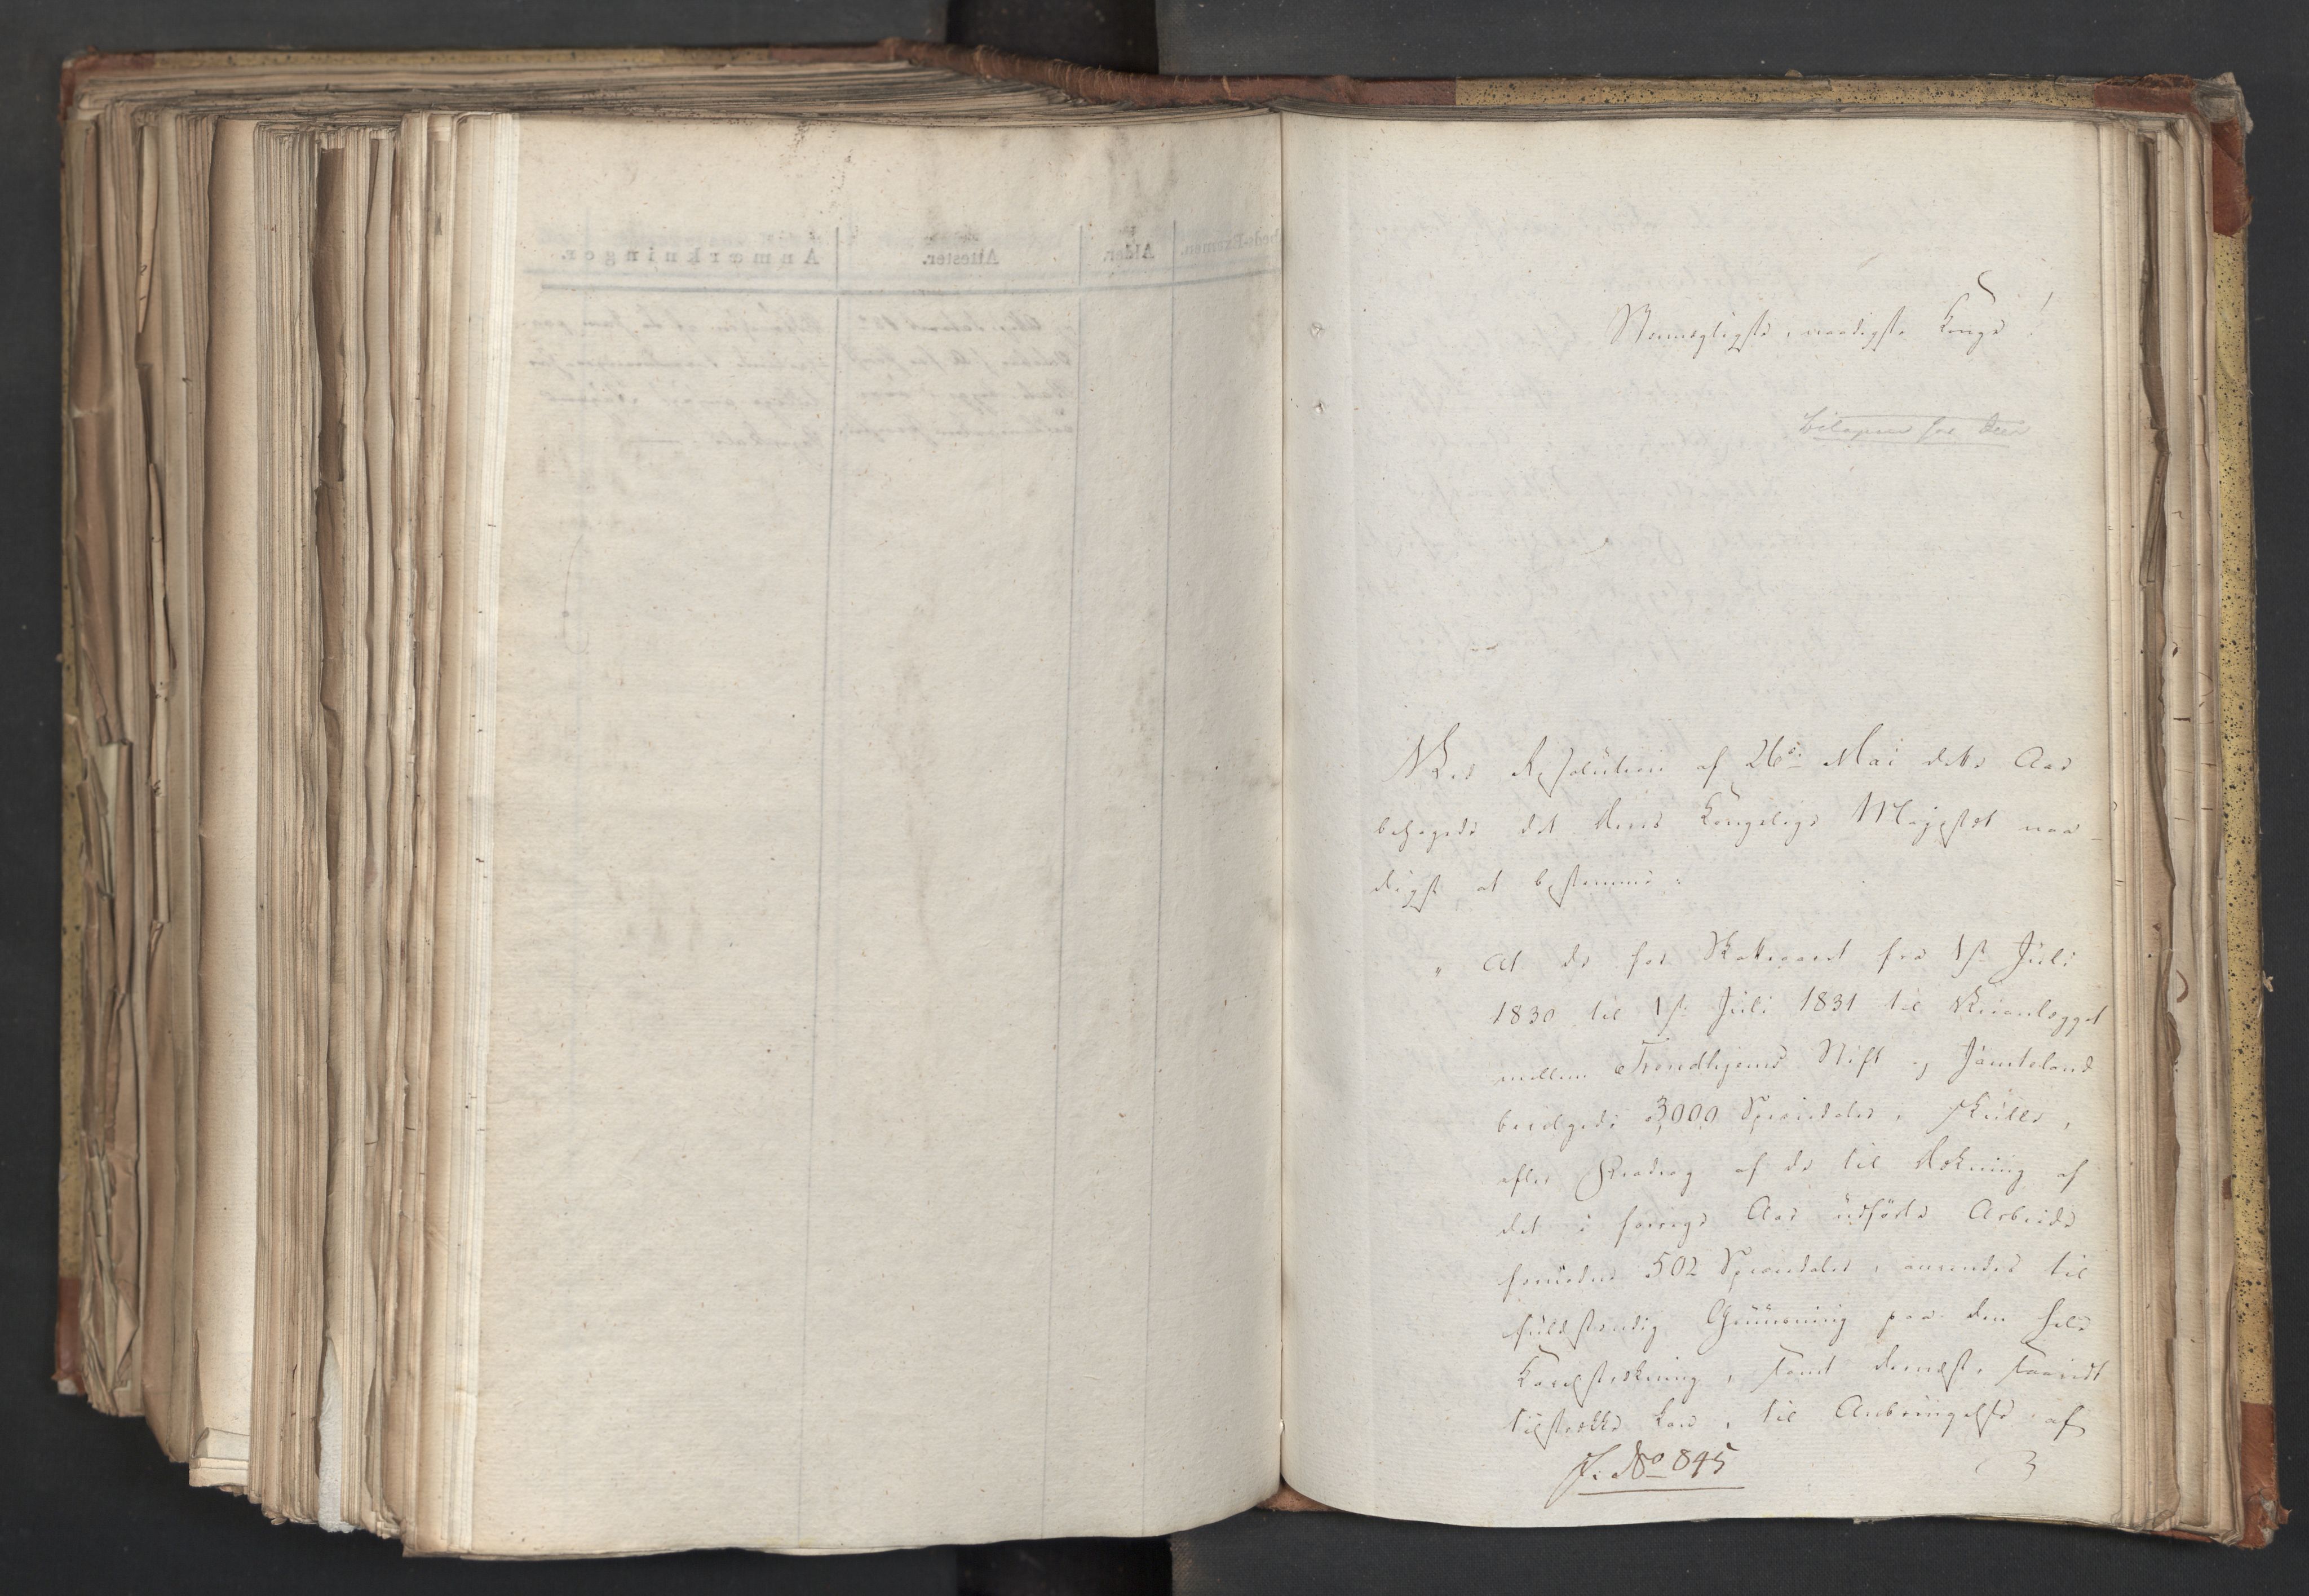 Stormægtigste, naadigste Konge!
Bilagene fol. Deres
Ved Resolution af 26de Mai dette Aar
behagede det Deres Kongelige Majestæt naa-
digst at bestemme:
"At de for Skatteaaret fra 1ste Juli
1830 til 1ste Juli 1831 til Veianlægget
mellem Trondhjems Stift og Jämteland
bevilgede 3,000 Speciedaler, skulle,
efter Fradrag af de til Dækning af
det i forrige Aar udførte Arbeide
fornødne 502 Speciedaler, anvendes til
fuldstændig Gruusning paa den hele
Veistrækning, samt dernæst, saavidt
tilstrække kan, til Anbringelse af
J. No 845
3
Anmærkninger.
Attester.
Alder.